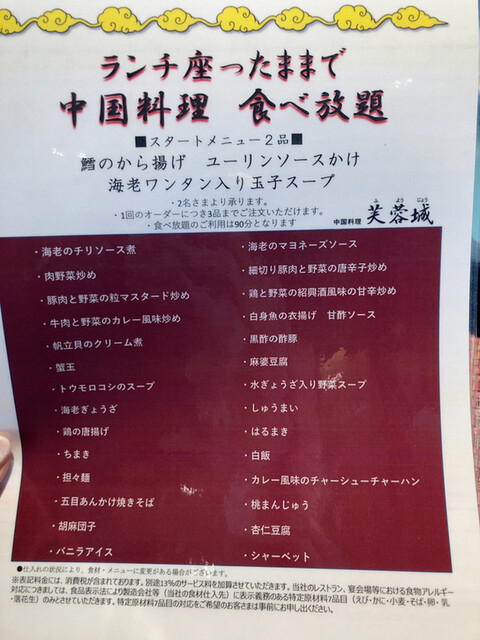 ランチ座ったままで
中国料理 食べ放題
■スタートメニュー2品■
鱈のから揚げ ユーリンソースかけ
海老ワンタン入り玉子スープ
・2名さまより承ります。
・1回のオーダーにつき3品までご注文いただけます。
・食べ放題のご利用は90分となります
ふようじょう
中国料理 芙蓉城
・海老のチリソース煮
・肉野菜炒め
・豚肉と野菜の粒マスタード炒め
・牛肉と野菜のカレー風味炒め
・帆立貝のクリーム煮
・蟹玉
・トウモロコシのスープ
・海老ぎょうざ
・鶏の唐揚げ
・ちまき
・担々麺
・五目あんかけ焼きそば
・胡麻団子
・バニラアイス
・海老のマヨネーズソース
・細切り豚肉と野菜の唐辛子炒め
・鶏と野菜の紹興酒風味の甘辛炒め
・白身魚の衣揚げ 甘酢ソース
・黒酢の酢豚
・麻婆豆腐
・水ぎょうざ入り野菜スープ
・しゅうまい
・はるまき
・白飯
・カレー風味のチャーシューチャーハン
・桃まんじゅう
・杏仁豆腐
・シャーベット
●仕入れの状況により、食材・メニューに変更がある場合がございます。
※表記料金には、消費税が含まれております。別途13%のサービス料を加算させていただきます。当社のレストラン、宴会場等における食物アレルギー
対応につきましては、食品表示法により製造会社等（当社の食材仕入先）に表示義務のある特定原材料7品目（えび・かに・小麦・そば・卵・乳
・落花生）のみとさせていただきます。特定原材料7品目の対応をご希望のお客さまは事前にお申し出ください。